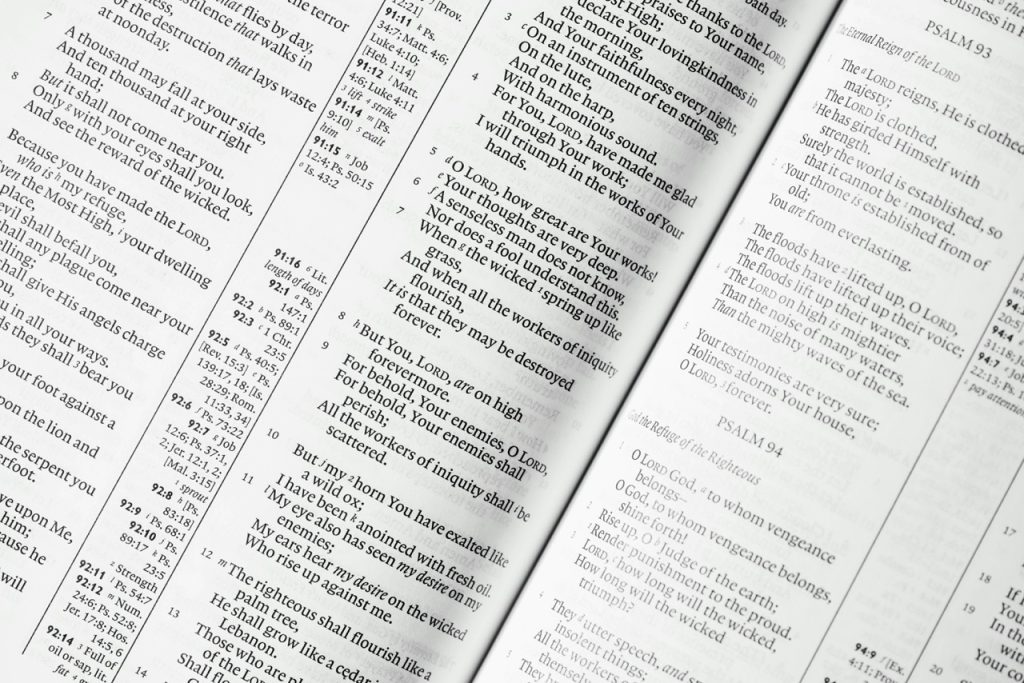 terror
that flies by day,
pestilence that walks in
of the destruction that lays waste
at noonday.
7
A thousand may fall at your side,
And ten thousand at your right
hand;
8
But it shall not come near you.
Only g with your eyes shall you look,
And see the reward of the wicked.
Because you have made the LORD,
who is h my refuge,
the Most High, i your dwelling
place,
evil shall befall you,
shall any plague come near your
shall give His angels charge
you in all your ways.
they shall 3 bear you
your foot against a
upon the lion and
the serpent you
upon Me,
him;
he
will
[Prov.
91:11 k Ps.
34:7; Matt. 4:6;
Luke 4:10;
[Heb. 1:14]
91:12 l Matt.
4:6; Luke 4:11
3 lift 4 strike
91:14 m [Ps.
9:10] 5 exalt
him
91:15 n Job
12:4; Ps. 50:15
o Is. 43:2
91:16 6 Lit.
length of days
92:1 a Ps.
147:1
92:2 b Ps. 89:1
92:3 c 1 Chr.
23:5
92:5 d Ps. 40:5;
[Rev. 15:3] e Ps.
139:17, 18; [Is.
28:29; Rom.
11:33, 34]
92:6 f Ps. 73:22
92:7 g Job
12:6; Ps. 37:1,
2; Jer. 12:1, 2;
[Mal. 3:15]
1 sprout
92:8 h [Ps.
83:18]
92:9 i Ps. 68:1
92:10 j Ps.
89:17 k Ps.
23:5
2 Strength
92:11 l Ps. 54:7
92:12 m Num.
24:6; Ps. 52:8;
Jer. 17:8; Hos.
14:5, 6
92:14 3 Full of
oil or sap, lit.
fat 4 green
thanks to the LORD,
praises to Your name,
Most High;
declare Your lovingkindness in
the morning,
And Your faithfulness every night,
3
On an instrument of ten strings,
On the lute,
And on the harp,
With harmonious sound.
4
For You, LORD, have made me glad
through Your work;
I will triumph in the works of Your
hands.
5
d O LORD, how great are Your works!
e Your thoughts are very deep.
6
f A senseless man does not know,
Nor does a fool understand this.
7
When g the wicked 1 spring up like
grass,
And when all the workers of iniquity
flourish,
It is that they may be destroyed
forever.
8
h But You, LORD, are on high
forevermore.
9
For behold, Your enemies, O LORD,
For behold, Your enemies shall
perish;
All the workers of iniquity shall i be
scattered.
10
But j my 2 horn You have exalted like
a wild ox;
I have been k anointed with fresh oil.
11
l My eye also has seen my desire on my
enemies;
My ears hear my desire on the wicked
Who rise up against me.
12
m The righteous shall flourish like a
palm tree,
He shall grow like a cedar in
Lebanon.
13
Those who are
of the LORD
Shall
14
PSALM 93
The Eternal Reign of the LORD
The a LORD reigns, He is clothed
majesty;
The LORD is clothed,
b He has girded Himself with
strength.
Surely the world is established, so
that it cannot be 1 moved.
2
c Your throne is established from of
old;
You are from everlasting.
3
The floods have 2 lifted up, O LORD,
The floods have lifted up their voice;
The floods lift up their waves.
4
d The LORD on high is mightier
Than the noise of many waters,
Than the mighty waves of the sea.
5
Your testimonies are very sure;
Holiness adorns Your house,
O LORD, 3 forever.
PSALM 94
God the Refuge of the Righteous
O LORD God, a to whom vengeance
belongs—
O God, to whom vengeance belongs,
shine forth!
2
Rise up, O b Judge of the earth;
c Render punishment to the proud.
3
LORD, d how long will the wicked,
How long will the wicked
triumph?
4
They e utter speech, and
insolent things;
All the workers of
5
They
94:9 f [Ex.
4:11; Prov.
94:4
31:18;
94:7 g Job
22:13; Ps.
2 pay attention
17
18
If
Your
19
In the
with
Your co
20